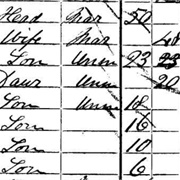 Head Mar 50
Wife Mar 48
Son Unm 23 23
Daur Unm 20
Son Unm 18
Son 16
Son 10
Son 6